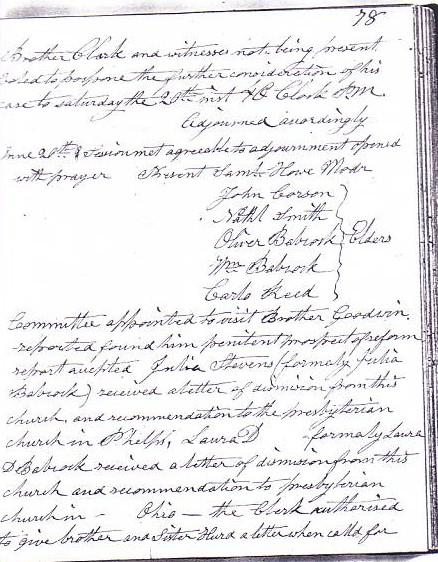 78
Brother Clark and witnesses not being present
to pospone the further consideration of his
case to saturday the 20th inst 4 O Clock P.M
Adjourned acordingly
June 20th Session met agreeable to adjournment opened
with prayer Present Saml Howe Modr
John Corson
Nathl Smith
Oliver Babcock Elders
Wm Babcock
Carlo Reed
Committee appointed to visit Brother Goodwin
reported found him penitent prospect of reform
report acepted Julia Stevens (formely Julia
Babcock) received a letter of dismision from this
church and recommendation to the presbyterian
church in Phelps, Laura D formaly Laura
D Babcock received a letter of dismision from this
church and recommendation to presbyterian
church in - Ohio - the Clerk authorised
to give brother and Sister Hurd a letter when calld for